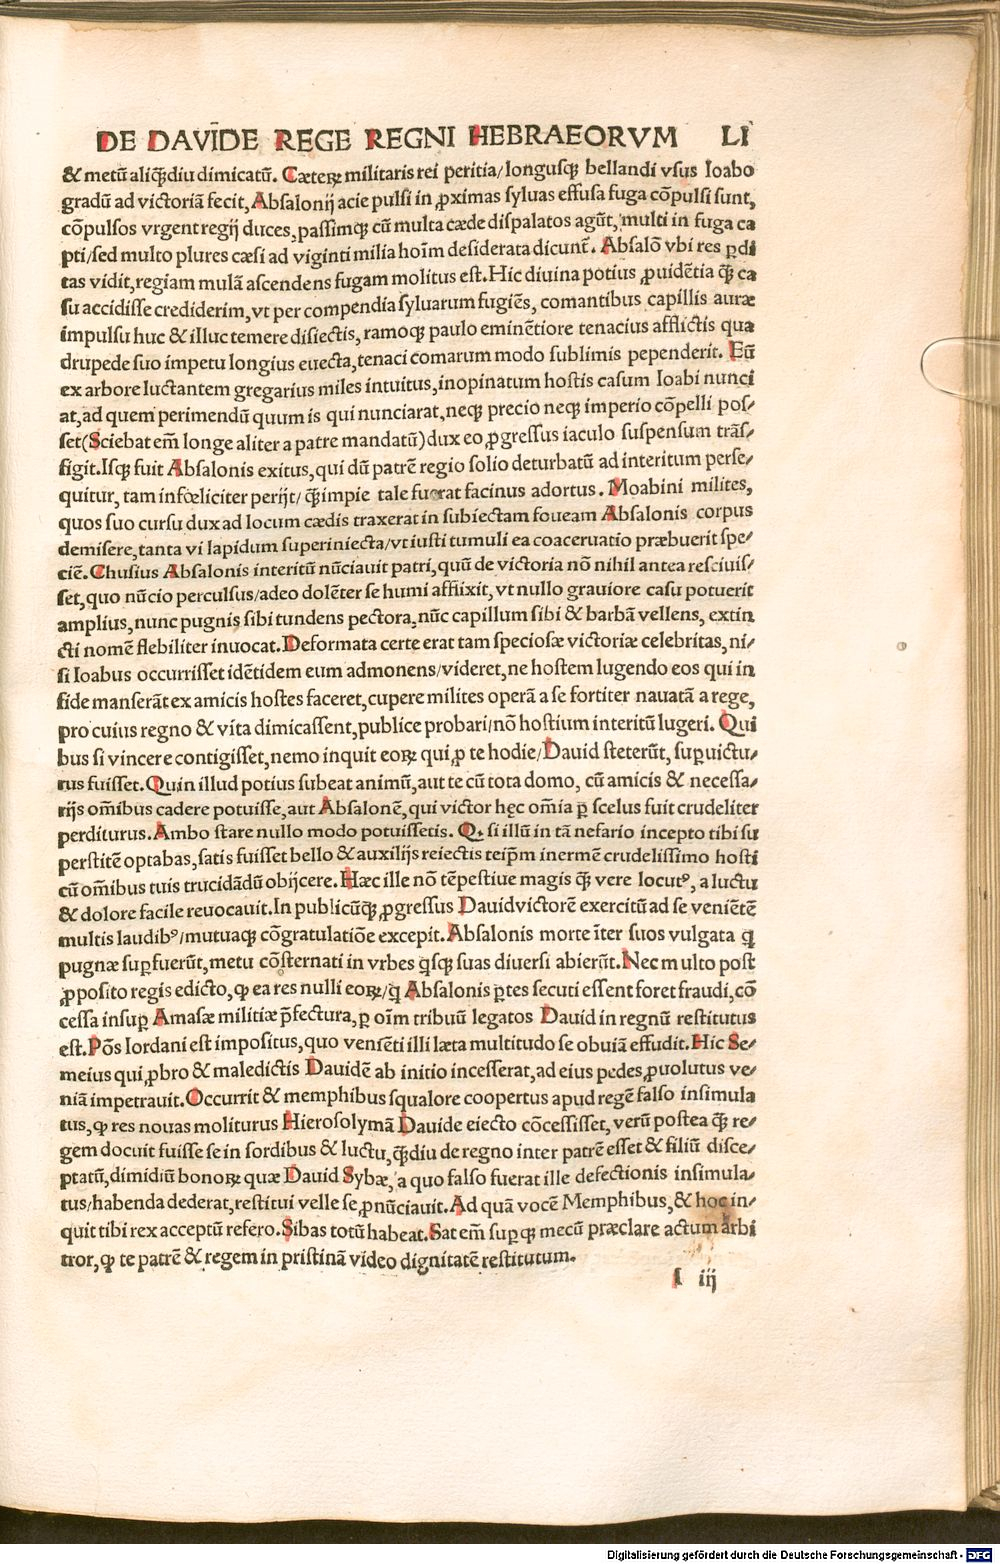 DE DAVIDE REGE REGNI HEBRAEORVM LI
& metū aliqꝫdiu dimicatū. Cæteꝝ militaris rei peritia/longusqꝫ bellandi vsus Ioabo
gradū ad victoriā fecit, Absalonij acie pulsi in ꝓximas syluas effusa fuga cōpulsi sunt,
cōpulsos vrgent regij duces, passimqꝫ cū multa cæde dispalatos agūt, multi in fuga ca
pti/sed multo plures cæsi ad viginti milia hoīm desiderata dicunt̄. Absalō vbi res ꝑdi
tas vidit, regiam mulā ascendens fugam molitus est. Hic diuina potius ꝓuidētia qꝫ̄ ca
su accidisse crediderim, vt per compendia syluarum fugiēs, comantibus capillis auræ
impulsu huc & illuc temere disiectis, ramoqꝫ paulo eminētiore tenacius afflictis qua
drupede suo impetu longius euecta, tenaci comarum modo sublimis pependerit. Eū
ex arbore luctantem gregarius miles intuitus, inopinatum hostis casum Ioabi nunci
at, ad quem perimendū quum is qui nunciarat, neqꝫ precio neqꝫ imperio cōpelli pos⸗
set (Sciebat em̄ longe aliter a patre mandatū) dux eo ꝓgressus iaculo suspensum trās⸗
figit. Isqꝫ fuit Absalonis exitus, qui dū patrē regio solio deturbatū ad interitum perse⸗
quitur, tam infœliciter perijt/ qꝫ̄ impie tale fuerat facinus adortus. Moabini milites,
quos suo cursu dux ad locum cædis traxerat in subiectam foueam Absalonis corpus
demisere, tanta vi lapidum superiniecta/vt iusti tumuli ea coaceruatio præbuerit spe⸗
ciē. Chusius Absalonis interitū nūciauit patri, quū de victoria nō nihil antea resciuis⸗
set, quo nūcio perculsus/adeo dolēter se humi afflixit, vt nullo grauiore casu potuerit
amplius, nunc pugnis sibi tundens pectora, nūc capillum sibi & barbā vellens, extin
cti nomē flebiliter inuocat. Deformata certe erat tam speciosæ victoriæ celebritas, ni⸗
si Ioabus occurrisset idētidem eum admonens/videret, ne hostem lugendo eos qui in
fide manserāt ex amicis hostes faceret, cupere milites operā a se fortiter nauatā a rege,
pro cuius regno & vita dimicassent, publice probari/nō hostium interitū lugeri. Qui
bus si vincere contigisset, nemo inquit eoꝝ qui ꝓ te hodie/Dauid steterūt, suꝑuictu⸗
rus fuisset. Quin illud potius subeat animū, aut te cū tota domo, cū amicis & necessa⸗
rijs om̄ibus cadere potuisse, aut Absalonē, qui victor hęc om̄ia ꝑ scelus fuit crudeliter
perditurus. Ambo stare nullo modo potuissetis. Q. si illū in tā nefario incepto tibi su
perstitē optabas, satis fuisset bello & auxilijs reiectis teip̄m inermē crudelissimo hosti
cū om̄ibus tuis trucidādū obijcere. Hæc ille nō tēpestiue magis qꝫ̄ vere locutꝰ, a luctu
& dolore facile reuocauit. In publicūqꝫ ꝓgressus Dauid victorē exercitū ad se veniētē
multis laudibꝰ/mutuaqꝫ cōgratulatiōe excepit. Absalonis morte īter suos vulgata q̄
pugnæ suꝑfuerūt, metu cōsternati in vrbes qͥsqꝫ suas diuersi abierūt. Nec multo post
ꝓposito regis edicto, ꝙ ea res nulli eoꝝ/q̄ Absalonis ꝑtes secuti essent foret fraudi, cō
cessa insuꝑ Amasæ militiæ p̄fectura, ꝑ oīm tribuū legatos Dauid in regnū restitutus
est. Pōs Iordani est impositus, quo venīeti illi læta multitudo se obuiā effudit. Hic Se⸗
meius qui ꝓbro & maledictis Dauidē ab initio incesserat, ad eius pedes ꝓuolutus ve⸗
niā impetrauit. Occurrit & memphibus squalore coopertus apud regē falso insimula
tus, ꝙ res nouas moliturus Hierosolymā Dauide eiecto cōcessisset, verū postea qꝫ̄ re⸗
gem docuit fuisse se in sordibus & luctu, qꝫ̄diu de regno inter patrē esset & filiū disce⸗
ptatū, dimidiū bonoꝝ quæ Dauid Sybæ, a quo falso fuerat ille defectionis insimula⸗
tus/habenda dederat, restitui velle se ꝓnūciauit. Ad quā vocē Memphibus, & hoc in⸗
quit tibi rex acceptū refero. Sibas totū habeat. Sat em̄ suꝑqꝫ mecū præclare actum arbi
tror, ꝙ te patrē & regem in pristinā video dignitatē restitutum.
I iij
Digitalisierung gefördert durch die Deutsche Forschungsgemeinschaft - DFG